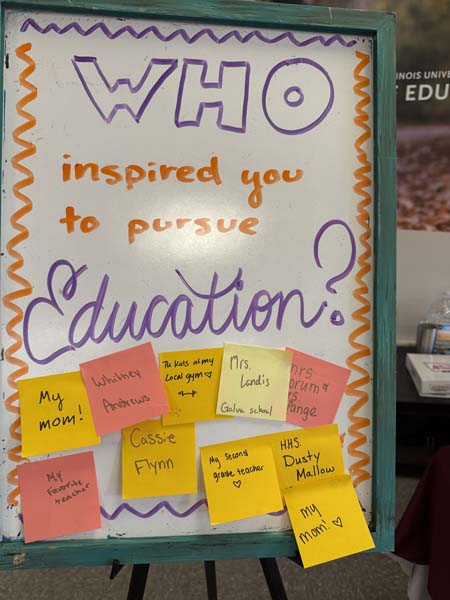 WHO
inspired you
to pursue
Education?
My
mom!
Whitney
Andrews
The kids at my
local gym
Mrs.
Landis
Galva school
Mrs
&
My
Favorite
teacher
Cassie
Flynn
My second
grade teacher
HHS.
Dusty
Mallow
My
mom!
INOIS UNIVE
EDU